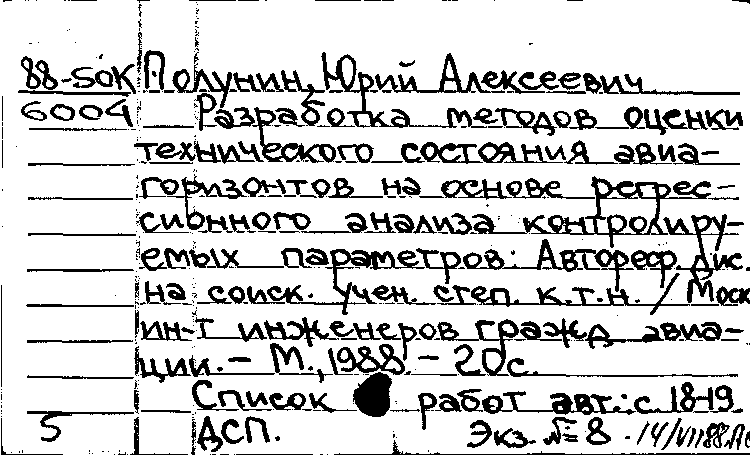 88-5ОК Полунин, Юрий Алексеевич
6004 Разработка методов оценки
технического состояния авиа-
горизонтов на основе регрес-
сионного анализа контролиру-
емых параметров: Автореф. Дис.
на соиск. учен. степ. к.т.н. / Моск
ин-т инженеров гражд авиа-
ции. - М., 1988. - 20с.
Список работ авт.: с. 18-19.
5 ДСП. Экз. №=8 14/VII88.